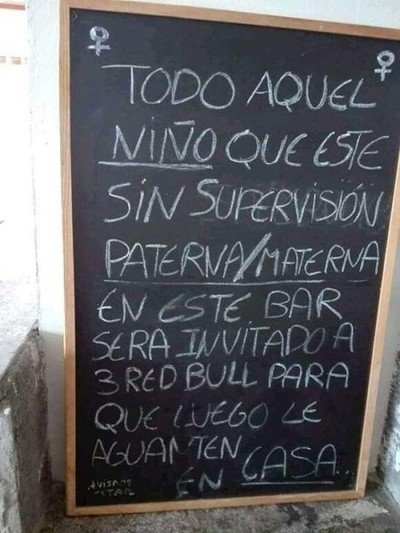 TODO AQUEL
NIÑO QUE ESTE
SIN SUPERVISIÓN
PATERNA/MATERNA
EN ESTE BAR
SERA INVITADO A
3 RED BULL PARA
QUE LUEGO LE
AGUANTEN
EN CASA...
AVISADOS